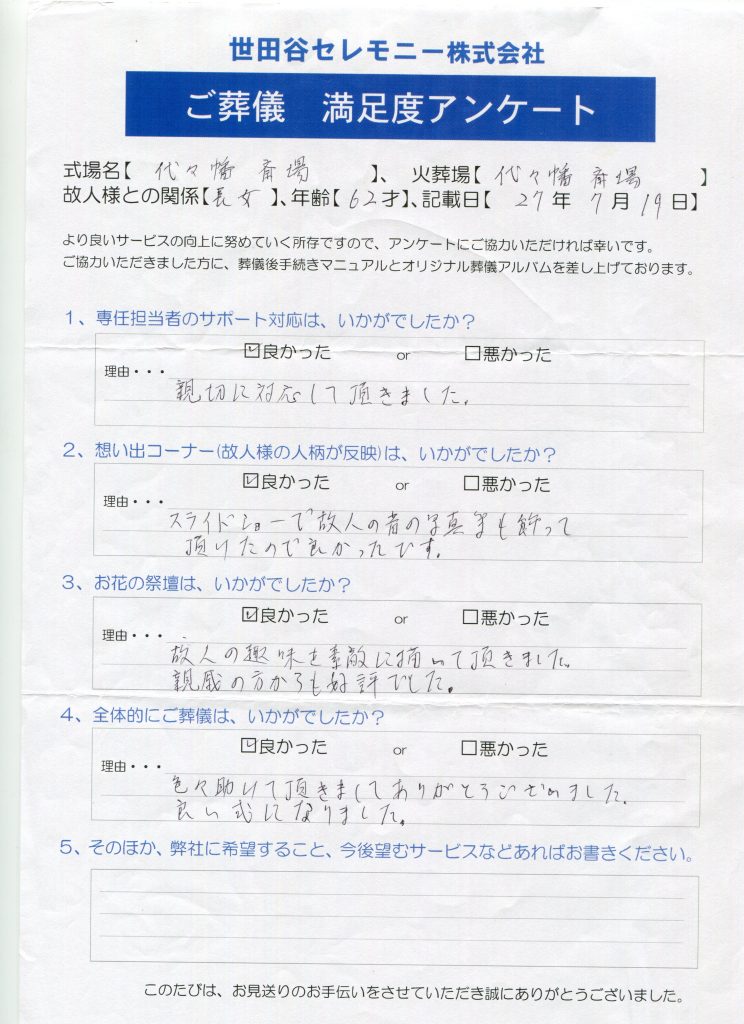 世田谷セレモニー株式会社
ご葬儀　満足度アンケート
式場名【 代々幡 斎場 】、 火葬場【 代々幡 斎場 】
故人様との関係【長女 】、年齢【 62才】、記載日【 27年 7月 19日】
より良いサービスの向上に努めていく所存ですので、アンケートにご協力いただければ幸いです。
ご協力いただきました方に、葬儀後手続きマニュアルとオリジナル葬儀アルバムを差し上げております。
1、専任担当者のサポート対応は、いかがでしたか？
☑良かった or □悪かった
理由・・・
親切に対応して頂きました。
2、想い出コーナー(故人様の人柄が反映)は、いかがでしたか？
☑良かった or □悪かった
理由・・・
スライドショーで故人の昔の写真等も飾って
頂けたので良かったです。
3、お花の祭壇は、いかがでしたか？
☑良かった or □悪かった
理由・・・
故人の趣味を素敵に描いて頂きました。
親戚の方からも好評でした。
4、全体的にご葬儀は、いかがでしたか？
☑良かった or □悪かった
理由・・・
色々助けて頂きましてありがとうございました。
良い式になりました。
5、そのほか、弊社に希望すること、今後望むサービスなどあればお書きください。
このたびは、お見送りのお手伝いをさせていただき誠にありがとうございました。